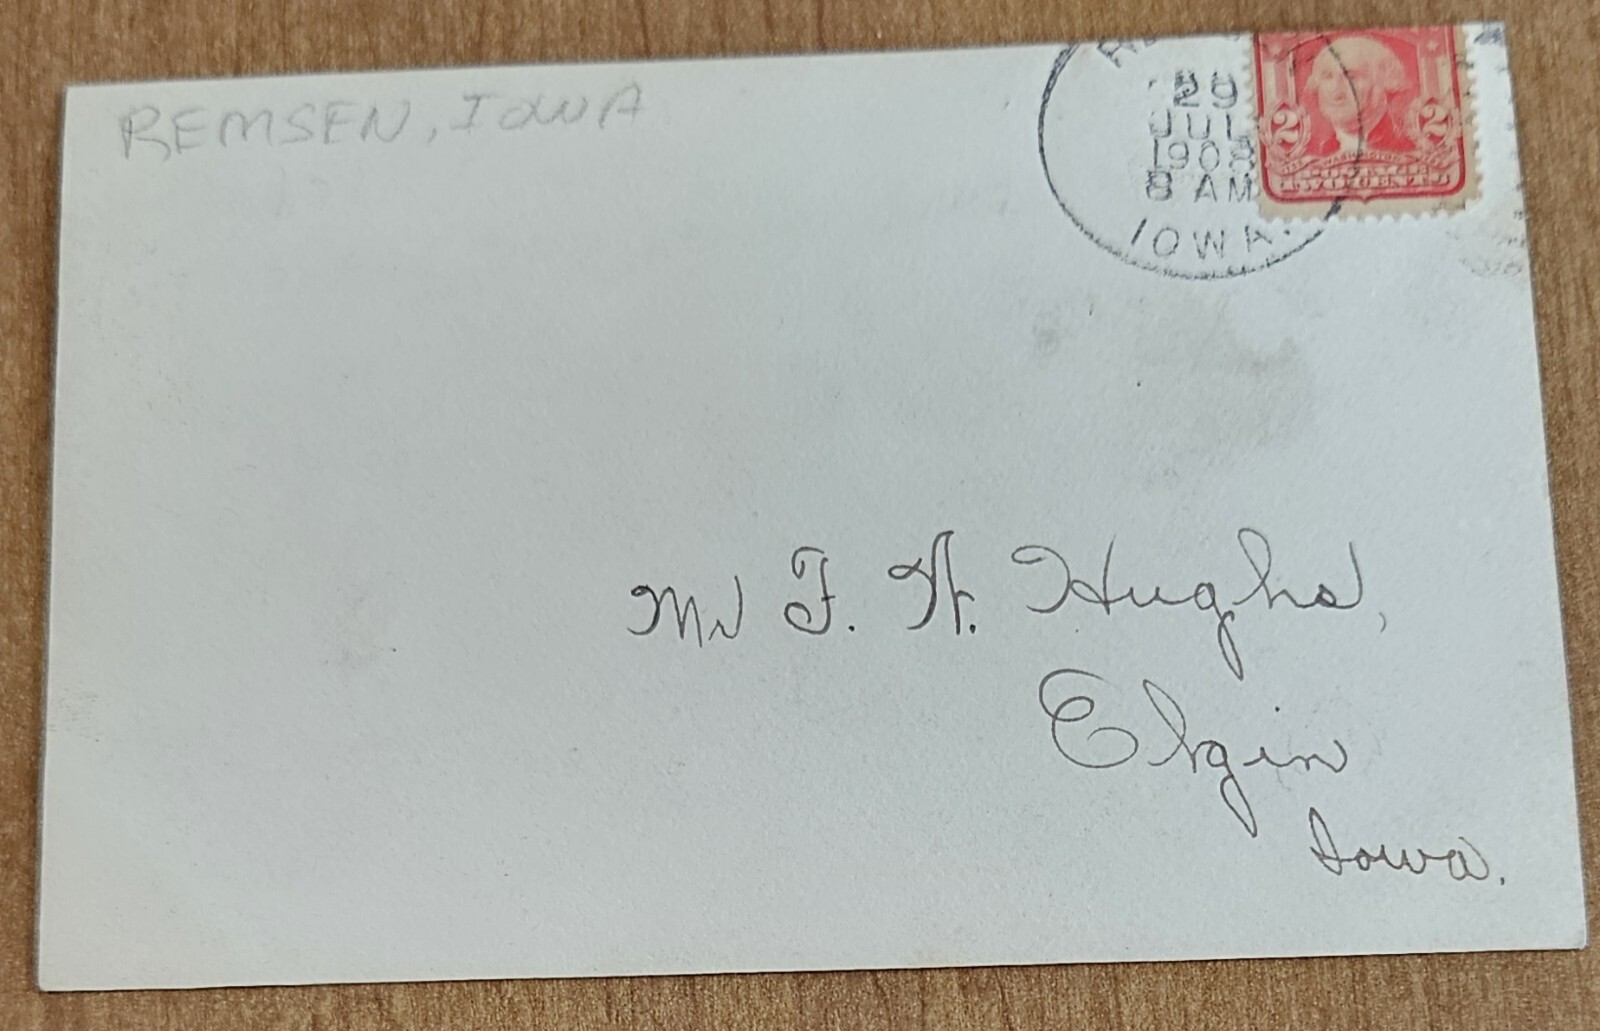 REMSEN, IOWA
29
JUL
1908
8 AM
IOWA.
2 2
WASHINGTON
TWO CENTS
Mr F. A. Hughs,
Elgin
Iowa.